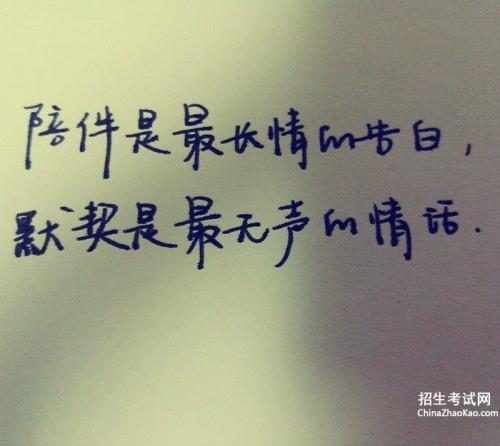 陪伴是最长情的告白，
默契是最无声的情话.
招生考试网
ChinaZhaoKao.com